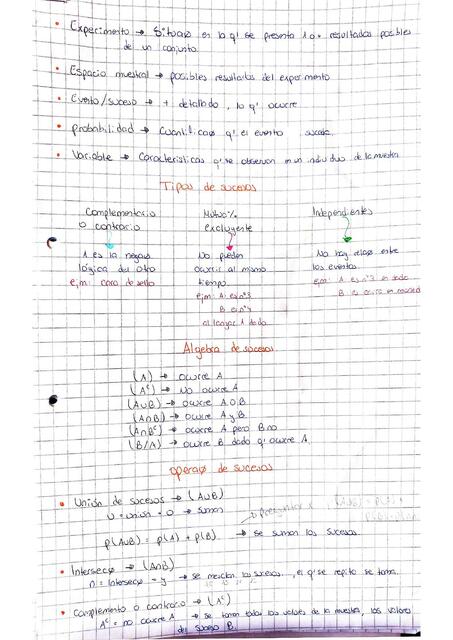 • Experimento → Situaø en la q' se presenta 1 o + resultados posibles
de un conjunto.
• Espacio muestral → posibles resultados del experimento
• Evento/suceso → + detallado, lo q' ocurre
• probabilidad → Cuantificaø q' el evento suceda.
• Variable → Características q' se observan en un individuo de la muestra
Tipos de sucesos
Complementario
o contrario
1 es la negaø
lógica del otro
ejm: cara de sello
Mutua%
excluyente
No pueden
ocurrir al mismo
tiempo.
ejm: A: es n°3
B: es n°4
al lanzar 1 dado.
Independientes
No hay relaø entre
los eventos
ejm: A es n°3 en dado
B es cara en moneda
Algebra de sucesos.
(A) → ocurre A
(Aᶜ) → No ocurre A
(A∪B) → ocurre A o B
(A∩B) → ocurre A y B
(A∩Bᶜ) → ocurre A pero B no
(B/A) → ocurre B dado q' ocurre A.
Operaø de sucesos
• Unión de sucesos → (A∪B)
∪ = unión = o → suman
p(A∪B) = p(A) + p(B) → se suman los sucesos.
• Intersecø → (A∩B)
∩ = Intersecø = y → se mezclan los sucesos, el q' se repite se toma.
• Complemento o contrario → (Aᶜ)
Aᶜ = no ocurre A → se toman todos los valores de la muestra, los valores
del suceso B.